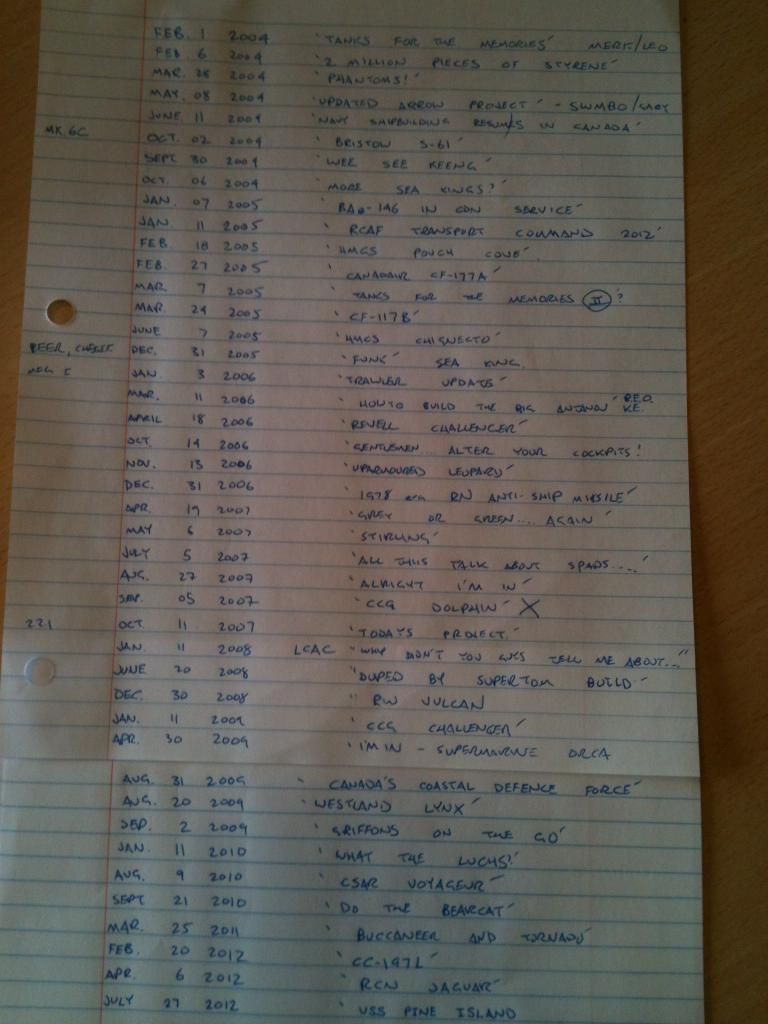 FEB. 1 2004 'TANKS FOR THE MEMORIES' MERK/LEO
FEB 6 2004 '2 MILLION PIECES OF STYRENE'
MAR. 28 2004 'PHANTOMS!'
MAY. 08 2004 'UPDATED ARROW PROJECT' - SWMBO/
JUNE 11 2004 'NAVY SHIPBUILDING RESUMES IN CANADA'
MK. 6C OCT. 02 2004 'BRISTOW S-61'
SEPT 30 2004 'WEE SEE KEENG'
OCT. 06 2004 'MORE SEA KINGS?'
JAN. 07 2005 'BAe-146 IN CDN SERVICE'
JAN. 11 2005 'RCAF TRANSPORT COMMAND 2012'
FEB. 18 2005 'HMCS POUCH COVE'
FEB. 27 2005 'CANADAIR CF-177A'
MAR. 7 2005 'TANKS FOR THE MEMORIES II'?
MAR. 24 2005 'CF-117B'
JUNE 7 2005 'HMCS CHIGNECTO'
BEER, CHEESE DEC. 31 2005 'FUNK' SEA KING
JAN 3 2006 'TRAWLER UPDATE'
MAR. 11 2006 'HOW TO BUILD THE BIG ANTONOV'
APRIL 18 2006 'REVELL CHALLENGER'
OCT. 14 2006 'GENTLEMEN... ALTER YOUR COCKPITS!
NOV. 13 2006 'UPARMOURED LEOPARD'
DEC. 31 2006 '1978 era RN ANTI-SHIP MISSILE'
APR. 19 2007 'GREY OR GREEN.... AGAIN'
MAY 6 2007 'STIRLING'
JULY 5 2007 'ALL THIS TALK ABOUT SPADS....'
AUG. 27 2007 'ALRIGHT I'M IN'
SEP. 05 2007 'CCG DOLPHIN' X
221 OCT. 11 2007 'TODAYS PROJECT'
JAN. 11 2008 LCAC "WHY DIDN'T YOU GUYS TELL ME ABOUT..."
JUNE 20 2008 "DUPED BY SUPERTOM BUILD"
DEC. 30 2008 " RN VULCAN
JAN. 11 2009 'CCG CHALLENGER'
APR. 30 2009 'I'M IN - SUPERMARINE ORCA
AUG. 31 2009 'CANADA'S COASTAL DEFENCE FORCE'
AUG. 20 2009 'WESTLAND LYNX'
SEP. 2 2009 'GRIFFONS ON THE GO'
JAN. 11 2010 'WHAT THE LUCHS!'
AUG. 9 2010 'CSAR VOYAGEUR'
SEPT 21 2010 'DO THE BEARCAT'
MAR. 25 2011 'BUCCANEER AND TORNADO'
FEB. 20 2012 'CC-197L'
APR. 6 2012 'RCN JAGUAR'
JULY 27 2012 'USS PINE ISLAND